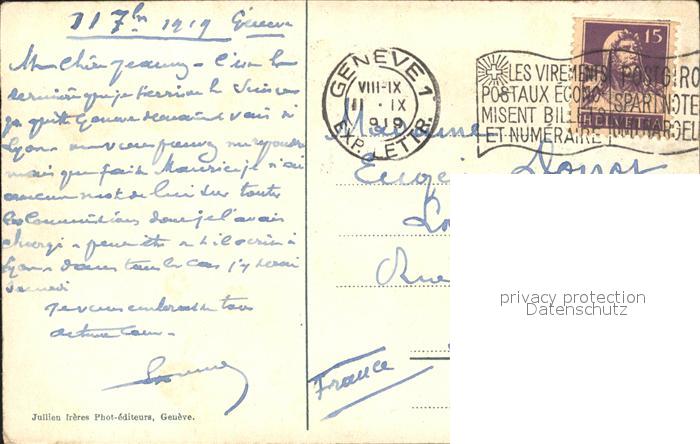 11 7bre 1919 Genève
Ma Chère Jeanne - C'est la
dernière que je t'écris de Suisse
je quitte Genève demain vais à
Lyon - vous pouvez me répondre
mais que fait Maurice je n'ai
aucun mot de lui sur toutes
les Commissions dont je l'avais
chargé - peut être a-t-il écrit à
Lyon - dans tous les cas j'y serai
samedi
Je vous embrasse de tout
cœur
Jullien frères Phot-éditeurs, Genève.
GENÈVE 1
VIII-IX
11 · IX
919
EXP. LETTR.
LES VIREMENTS
POSTAUX ÉCONO
MISENT BILL
ET NUMÉRAIRE
POSTGIRO
SPART NOTE
BARGEL
15
HELVETIA
Madame
Eugè
Rue
France
privacy protection
Datenschutz